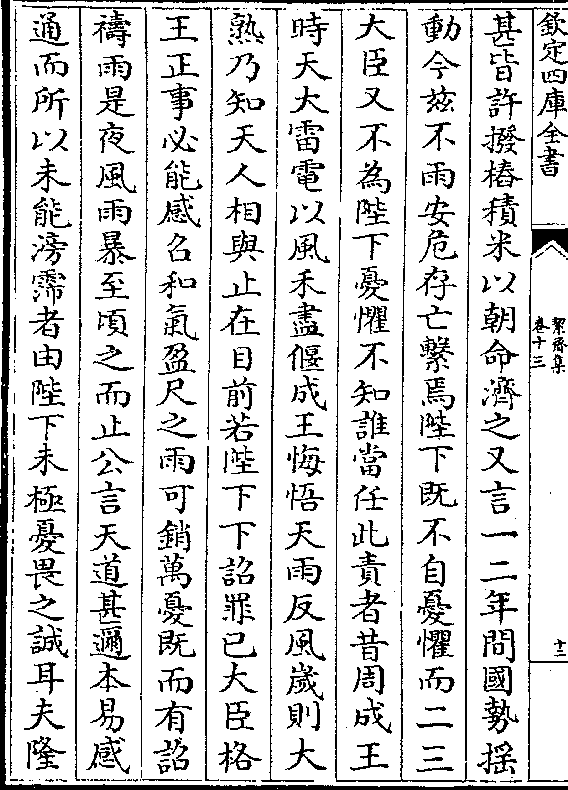 欽定四庫全書
絜齋集
卷十三
十三
甚皆許撥樁積米以朝命濟之又言一二年間國勢揺
動今兹不雨安危存亡繫焉陛下既不自憂懼而二三
大臣又不為陛下憂懼不知誰當任此責者昔周成王
時天大雷電以風禾盡偃成王悔悟天雨反風嵗則大
熟乃知天人相與止在目前若陛下下詔罪已大臣格
王正事必能感召和氣盈尺之雨可銷萬憂既而有詔
禱雨是夜風雨暴至頃之而止公言天道甚邇本易感
通而所以未能滂霈者由陛下未極憂畏之誠耳夫隆